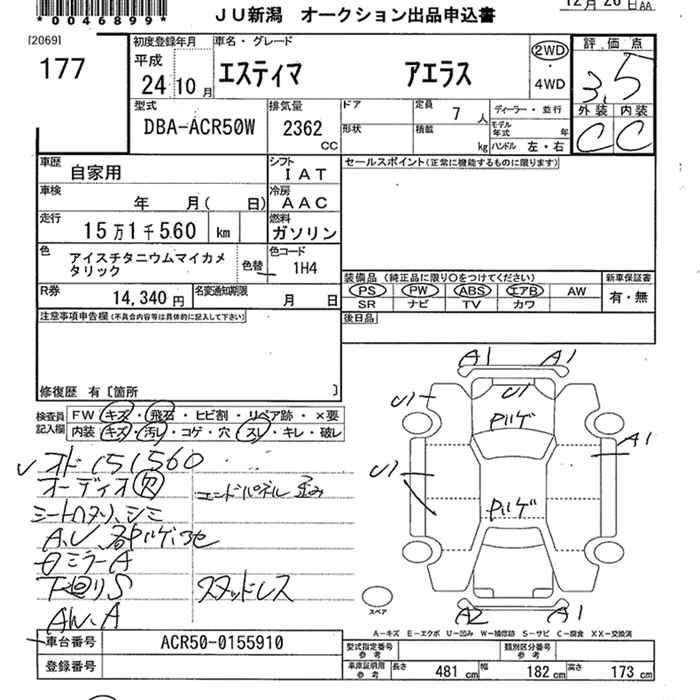 *0046899*
JU新潟 オークション出品申込書
12月 20日AA
[2069]
177
初度登録年月
平成
24 10月
車名・グレード
エスティマ アエラス
2WD
・
4WD
評価点
3.5
外装 内装
C C
型式
DBA-ACR50W
排気量
2362
CC
ドア
形状
定員 7 人
積載 kg
ディーラー・並行
モデル年式 年
ハンドル 左・右
車歴
自家用
シフト
IAT
セールスポイント(正常に機能するものに限ります)
車検
年 月( 日)
冷房
AAC
走行
15万1千560 km
燃料
ガソリン
色
アイスチタニウムマイカメ
タリック
色替
色コード
1H4
装備品 (純正品に限り○をつけてください)
PS PW ABS エアB AW
SR ナビ TV カワ
新車保証書
有・無
R券
14,340 円
名変通知期限
月 日
後日品
注意事項申告欄(不具合内容等は具体的に記入して下さい)
修復歴 有〔箇所 〕
検査員
記入欄
FW キズ・飛石・ヒビ割・リペア跡・×要
内装 キズ・汚レ・コゲ・穴・スレ・キレ・破レ
オド151560
オーディオ欠
エンドパネル歪み
シート
ミラーA
下廻りS
スタッドレス
AW.A
A1 A1
U1 U1
Pハゲ
A1
U1
Pハゲ
スペア
A2 A1
A-キズ E-エクボ U-凹み W-補修跡 S-サビ C-腐食 XX-交換済
車台番号
ACR50-0155910
登録番号
型式指定番号
参考
類別区分番号
参考
車庫証明用
参考
長さ 481 cm 幅 182 cm 高さ 173 cm